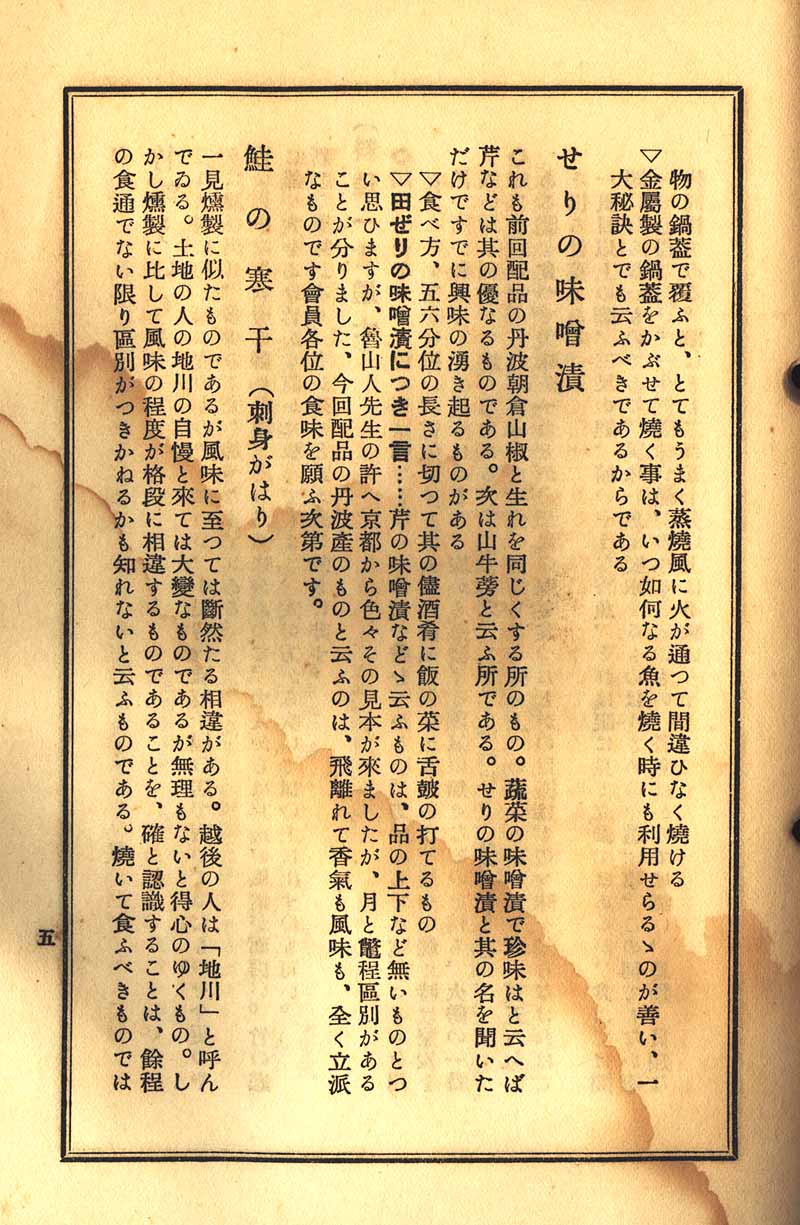 物の鍋葢で覆ふと、とてもうまく蒸燒風に火が通つて間違ひなく燒ける
▽金屬製の鍋葢をかぶせて燒く事は、いつ如何なる魚を燒く時にも利用せらるゝのが善い、一
大秘訣とでも云ふべきであるからである
せりの味噌漬
これも前回配品の丹波朝倉山椒と生れを同じくする所のもの。蔬菜の味噌漬で珍味はと云へば
芹などは其の優なるものである。次は山牛蒡と云ふ所である。せりの味噌漬と其の名を聞いた
だけですでに興味の湧き起るものがある
▽食べ方、五六分位の長さに切つて其の儘酒肴に飯の菜に舌皷の打てるもの
▽田ぜりの味噌漬につき一言……芹の味噌漬などゝ云ふものは、品の上下など無いものとつ
い思ひますが、魯山人先生の許へ京都から色々その見本が來ましたが、月と鼈程區別がある
ことが分りました、今回配品の丹波產のものと云ふのは、飛離れて香氣も風味も、全く立派
なものです會員各位の食味を願ふ次第です。
鮭の寒干（刺身がはり）
一見燻製に似たものであるが風味に至つては斷然たる相違がある。越後の人は「地川」と呼ん
でゐる。土地の人の地川の自慢と來ては大變なものであるが無理もないと得心のゆくもの。し
かし燻製に比して風味の程度が格段に相違するものであることを、確と認識することは、餘程
の食通でない限り區別がつきかねるかも知れないと云ふものである。燒いて食ふべきものでは
五